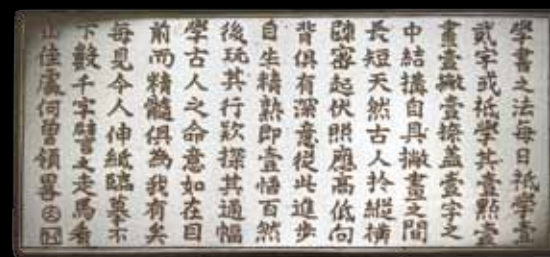 學書之法每日祗學壹
貳字或祗學其壹點壹
畫壹撇壹捺蓋壹字之
中結構自具撇畫之間
長短天然古人扵縱橫
疎審起伏照應高低向
背俱有深意從此進步
自生精熟即壹悟百然
後玩其行款探其通幅
學古人之命意如在目
前而精髓俱為我有矣
每見今人伸紙臨摹不
下數千字譬之走馬看
山佳處何曾領畧